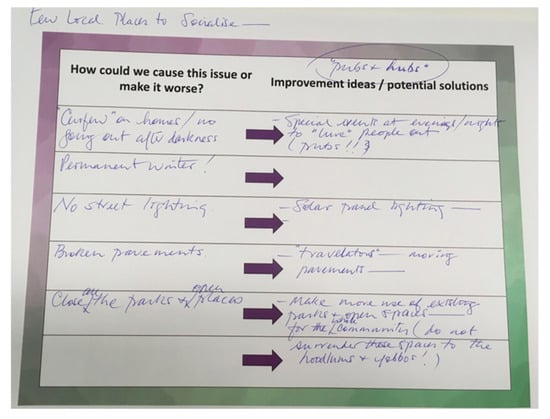 Few Local Places to Socialise —
"pubs & hubs"
How could we cause this issue or
make it worse?
Improvement ideas / potential solutions
"Curfew" on homes / no
going out after darkness
- Special events at evenings/night
to "lure" people out
(pubs !!?)
Permanent winter!
No street lighting
- Solar panel lighting —
-
Broken pavements
- "travelators" — moving
pavements —
Close all the parks & open places
- Make more use of existing
parks & open spaces —
for the whole community (do not
surrender these spaces to the
hoodlums & yobbos!)